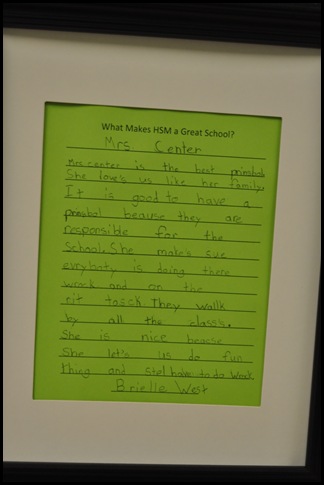 What Makes HSM a Great School?
Mrs Center
Mrs center is the best prinshol
She love's us like her family.
It is good to have a
prinshol beause they are
responsible for the
School. She make's sue
evryboty is doing there
wrock and on the
rit tasck. They wallk
by all the class's.
She is nice beacse
She let's us do fun
thing and stel have to do wrock.
Brielle West